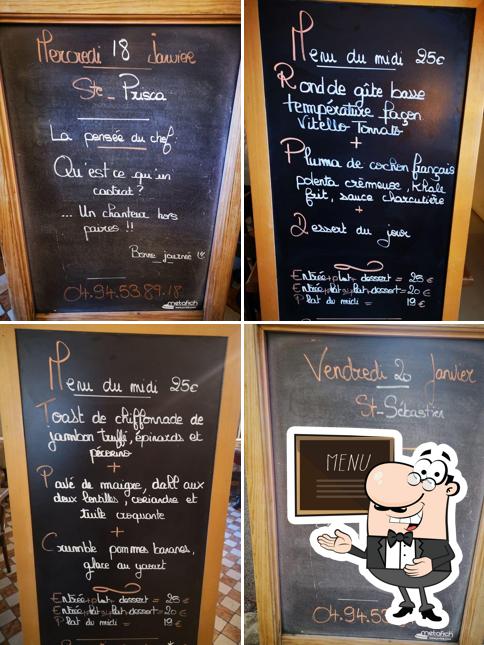 Mercredi 18 Janvier
Ste Prisca
La pensée du chef
Qu'est ce qu'un
castrat ?
... Un chanteur hors
paires !!
Bonne journée !!
04.94.53.89.18
metafich
Menu du midi 25€
Rond de gîte basse
température façon
Vitello Tonnato
+
Pluma de cochon français
polenta crèmeuse, Khale
frit, sauce charcutière
+
Dessert du jour
Entrée+plat+dessert = 25€
Entrée+plat ou plat+dessert = 20€
Plat du midi = 19€
Menu du midi 25€
Toast de chiffonnade de
jambon truffé, épinards et
pécorino
+
Pavé de maigre, dall aux
deux lentilles coriandre et
tuile croquante
+
Crumble pommes bananes,
glace au yaourt
Entrée+plat+dessert = 25€
Entrée+plat ou plat+dessert = 20€
Plat du midi = 19€
Vendredi 20 Janvier
St-Sébastien
MENU
04.94.53
metafich